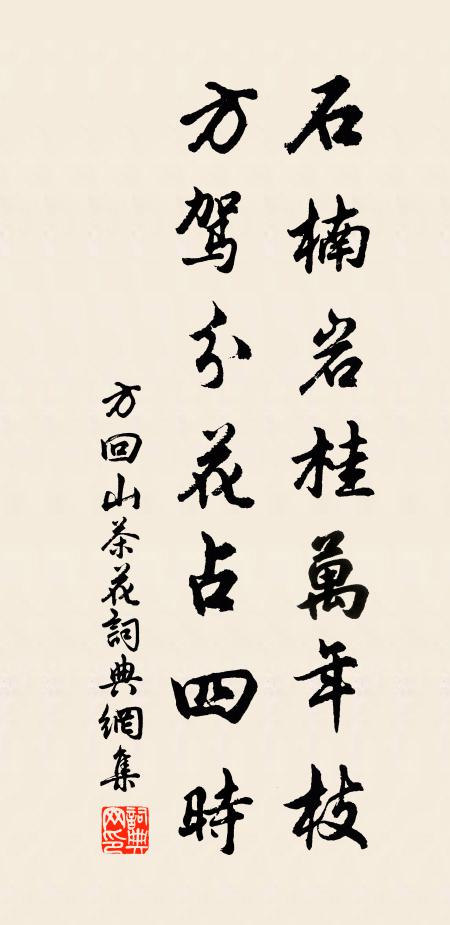 石楠岩桂萬年枝
方驾分花占四時
方回山茶花詞典網集
詞典网印